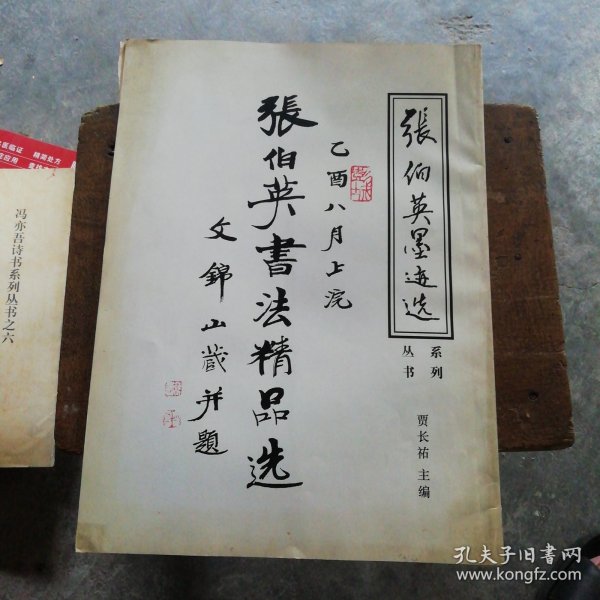 張伯英墨迹选
系列
丛书
贾长祐 主编
乙酉八月上浣
張伯英書法精品选
文錦山藏并題
冯亦吾诗书系列丛书之六
医临证 精高处方
应用
孔夫子旧书网
www.kongfz.com